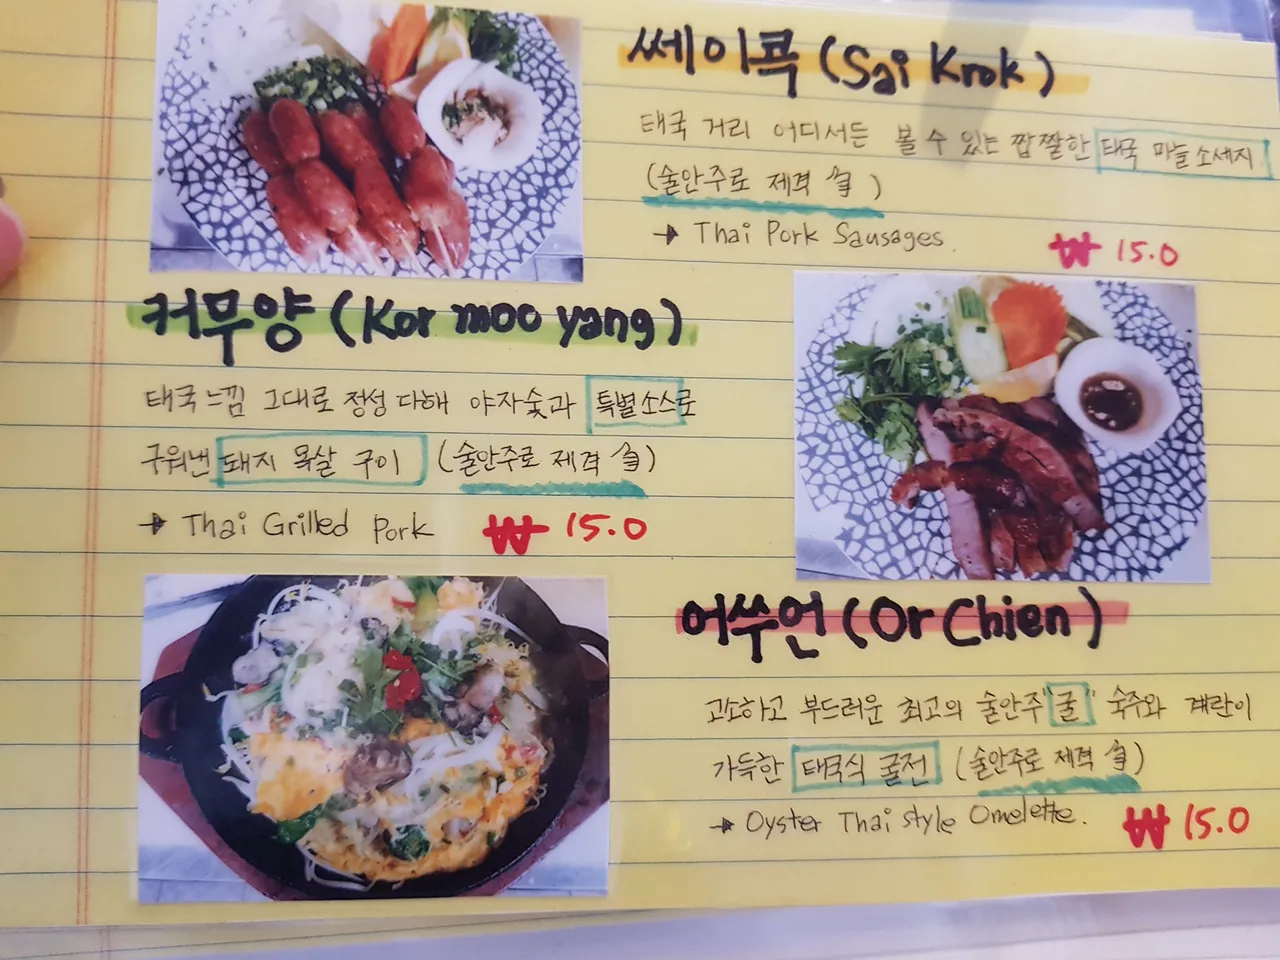 쎄이콕 (Sai Krok)
태국 거리 어디서든 볼 수 있는 짭짤한 태국 마늘소세지
(술안주로 제격)
→ Thai Pork Sausages.
₩ 15.0
커무양 (Kor moo yang)
태국느낌 그대로 정성 다해 야자숯과 특별소스로
구워낸 돼지 목살 구이 (술안주로 제격)
→ Thai Grilled Pork
₩ 15.0
어쑤언 (Or Chien)
고소하고 부드러운 최고의 술안주 "굴" 숙주와 계란이
가득한 태국식 굴전 (술안주로 제격)
→ Oyster Thai style Omelette.
₩ 15.0